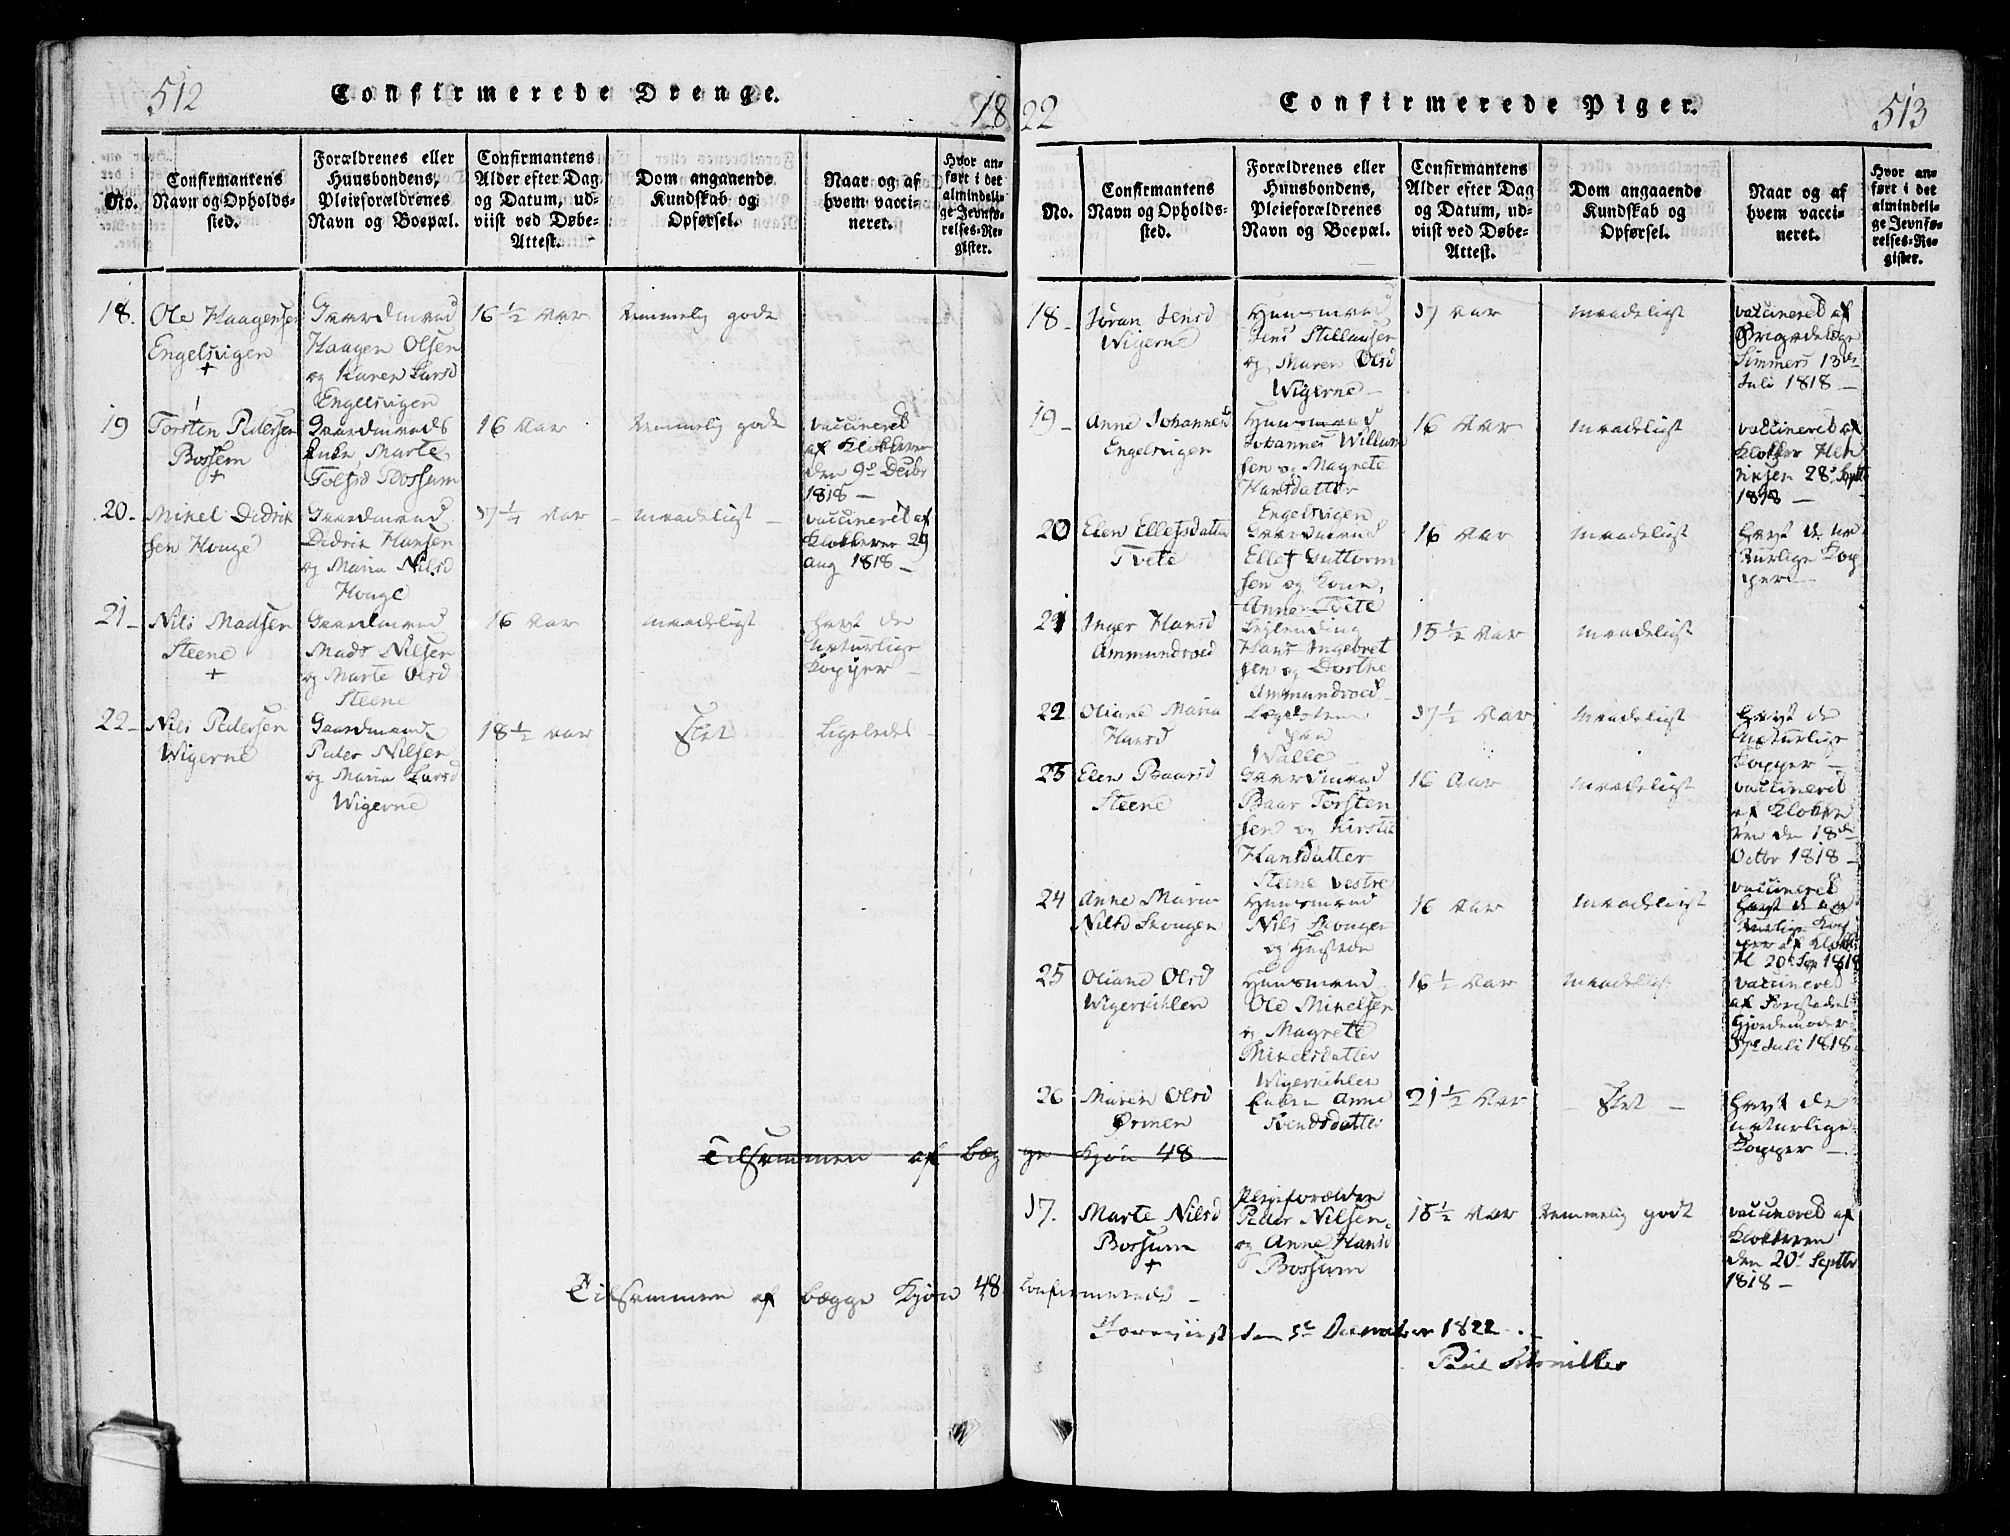 512
Confirmerede Drenge.
18
No.
Confirmantens
Navn og Opholds-
sted.
Forældrenes eller
Huusbondens,
Pleieforældrenes
Navn og Boepæl.
Confirmantens
Alder efter Dag
og Datum, ud-
viist ved Døbe-
Attest.
Dom angaaende
Kundskab og
Opførsel.
Naar og af
hvem vacci-
neret.
Hvor an-
ført i det
almindeli-
ge Jevnfø-
relses-Re-
gister.
18.
Ole Haagensen
Engelsvigen
+
Gaardmand
Haagen Olsen
og Karen Larsd
Engelsvigen
16 ½ Aar
temmelig gode
19
Torsten Pedersen
Bossum
+
Gaardmands
Enke Marte
Bossum
16 Aar
temmelig gode
vaccineret
af Klokkeren
den 9de Decbr
1818 —
20-
Mikel Didrik
sen Houge
Gaardmand
Didrik Hansen
og Maria Nilsd
Houge
17 ¼ Aar
- maadeligt -
vaccineret af
Klokkeren 29
Aug 1818 -
21-
Nils Madsen
Steene
+
Gaardmand
Mads Nilsen
og Marte Olsd
Steene
16 Aar
maadeligt
havt de
naturlige
Kopper -
22-
Nils Pedersen
Wigerne
Gaardmand
Peder Nilsen
og Maria Larsd
Wigerne
18 ½ Aar
Slet
Ligeledes -
Tilsammen af bæg
Tilsammen af begge Kjøn 48
22
Confirmerede Piger.
513
No.
Confirmantens
Navn og Opholds-
sted.
Forældrenes eller
Huusbondens,
Pleieforældrenes
Navn og Boepæl.
Confirmantens
Alder efter Dag
og Datum, ud-
viist ved Døbe-
Attest.
Dom angaaende
Kundskab og
Opførsel.
Naar og af
hvem vacci-
neret.
Hvor an-
ført i det
almindeli-
ge Jevnfø-
relses-Re-
gister.
18-
Jøran Jensd
Wigerne
Huusmand
Jens Stillausen
og Maren Olsd
Wigerne -
17 Aar
maadeligt
vaccineret af
Brigadelæge
Simmers 13de
Juli 1818 -
19-
Anne Johannesd
Engelsvigen
Huusmand
Johannes Willum
sen og Magrete
Hansdatter
Engelsvigen
16 Aar
maadeligt
vaccineret af
Klokker Hen
riksen 28de Septbr
1818 -
20
Elen Ellefsdatter
Tvete
Gaardmand
Ellef Guttorm
sen og Kone,
Anne Tvete
16 Aar
maadeligt
havt de na
turlige Kop
per -
21
Inger Hansd
Ammundroed
Leilending
Hans Ingebret
sen og Dorthe
Ammundroed
15 ½ Aar
maadeligt
22
Oliane Maria
Hansd
Walle
17 ½ Aar
maadeligt
havt de
naturlige
Kopper -
23
Elen Baarsd
Steene
Gaardmand
Baar Torsten
sen og Kirstie
Hansdatter
Steene vestre
16 Aar
maadeligt
vaccineret
af Klokke
ren den 18de
Octbr 1818 -
24
Anne Maria
Nilsd Skougen
Huusmand
Nils Skougen
og Hustrue
16 Aar
maadeligt
vaccineret
havt de na
turlige Kop
per af Klokk:
H. 20de Sep 1818
25
Oliane Olsd
Wigerkihlen
Huusmand
Ole Mikelsen
og Magrete
Mikelsdatter
Wigerkihlen
16 ½ Aar
maadeligt
vaccineret
af
Gjordemoder
17de Juli 1818 -
26
Maren Olsd
Ørmen
Enken Anne
Svendsdatter
21 ½ Aar
- Slet -
havt de
naturlige
Kopper -
ge Kjøn 48
17.
Marte Nilsd
Bossum
+
Pleieforældre
Peder Nilsen
og Anne Hansd
Bossum
18 ½ Aar
temmelig godt
vaccineret af
Klokkeren
den 20de Septbr
1818 -
Confirmerede -
Foreviist den 5te December 1822.